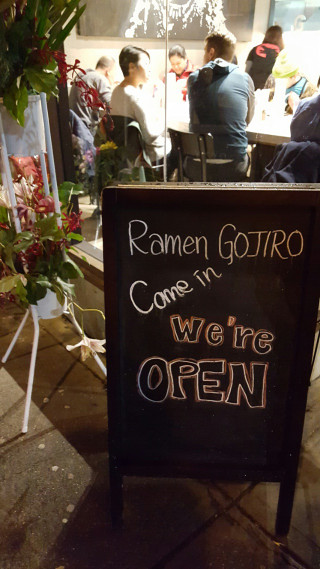 Ramen GOJIRO
Come in
We're
OPEN